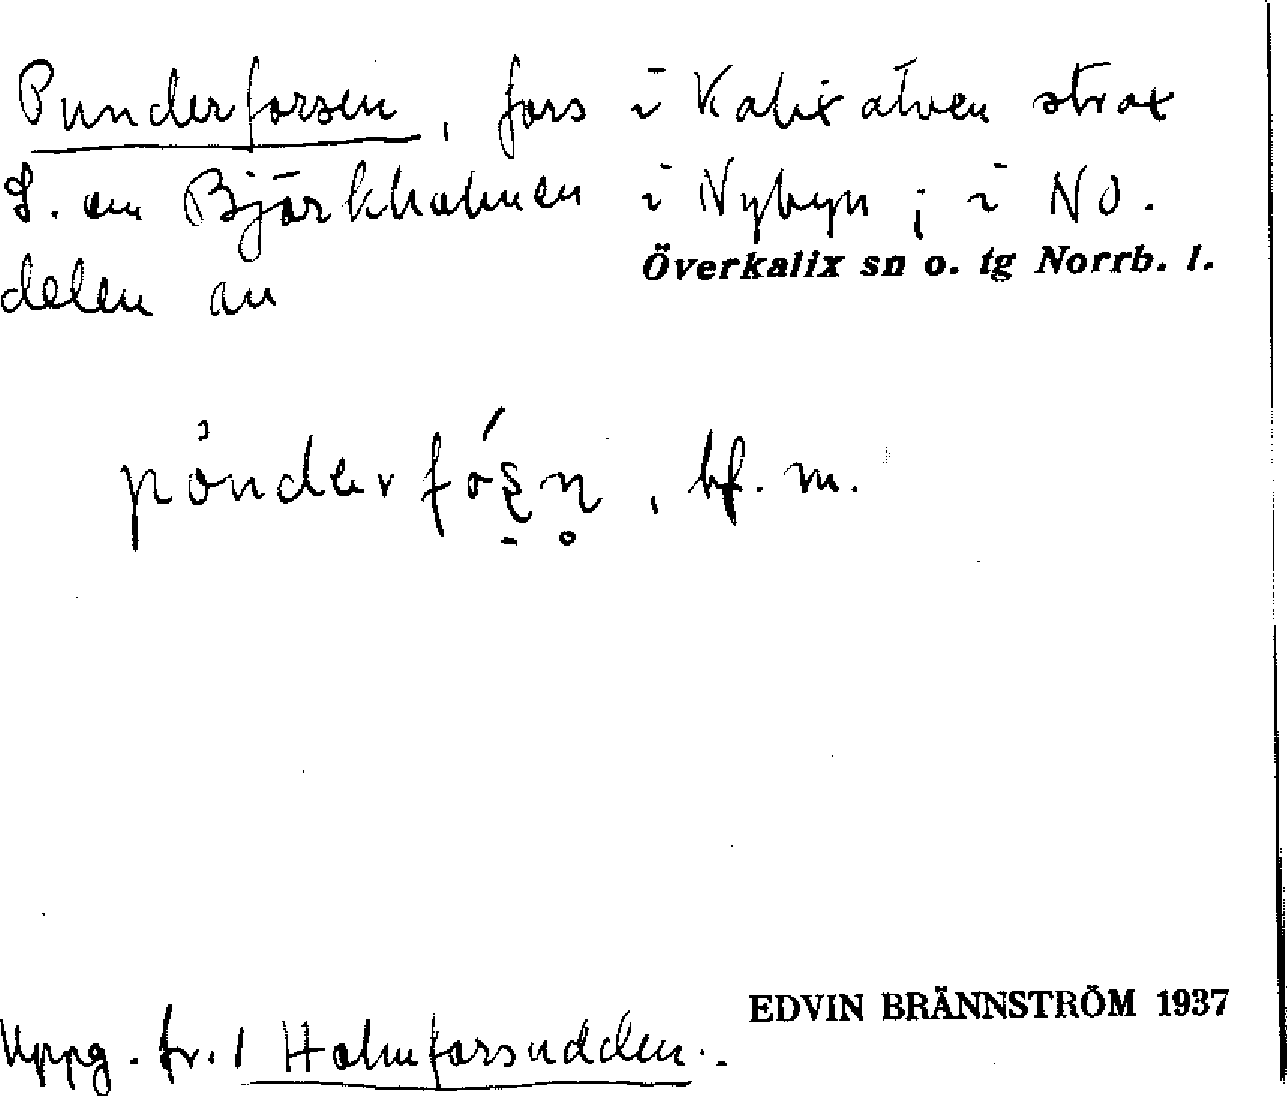 Punderforsen, fors i Kalixälven strax
S. om Björkholmen i Nybyn; i NO.
delen av
Överkalix sn o. tg Norrb. l.
pȯnderfó̱ʂn̥, bf. m.
Uppg. fr. 1 Holmforsudden.
EDVIN BRÄNNSTRÖM 1937